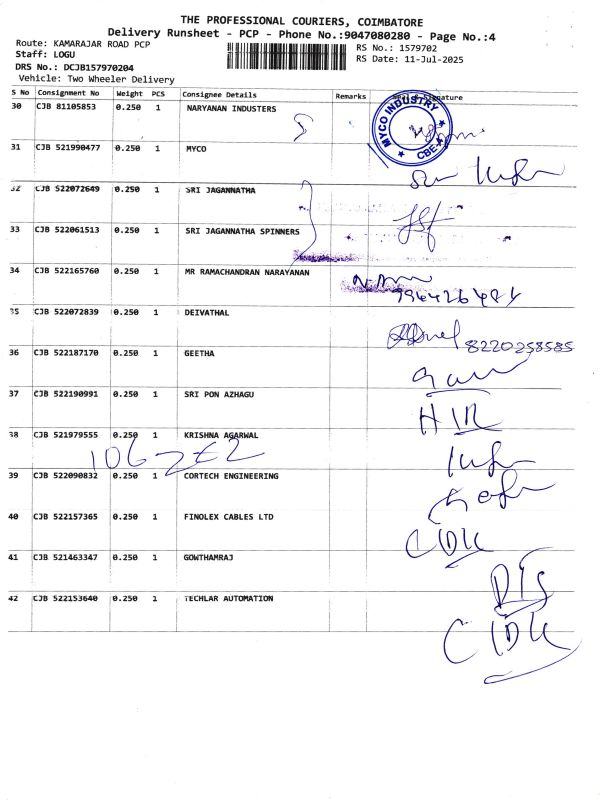 THE PROFESSIONAL COURIERS, COIMBATORE
Delivery Runsheet - PCP - Phone No.:9047080280 - Page No.:4
Route: KAMARAJAR ROAD PCP
RS No.: 1579702
Staff: LOGU
RS Date: 11-Jul-2025
DRS No.: DCJB157970204
Vehicle: Two Wheeler Delivery
S No Consignment No Weight PCS Consignee Details Remarks Signature
30 CJB 81105853 0.250 1 NARYANAN INDUSTERS
MYCO INDUSTRY CBE-4
31 CJB 521990477 0.250 1 MYCO
32 CJB 522072649 0.250 1 SRI JAGANNATHA
33 CJB 522061513 0.250 1 SRI JAGANNATHA SPINNERS
34 CJB 522165760 0.250 1 MR RAMACHANDRAN NARAYANAN
35 CJB 522072839 0.250 1 DEIVATHAL
8220258585
36 CJB 522187170 0.250 1 GEETHA
37 CJB 522190991 0.250 1 SRI PON AZHAGU
38 CJB 521979555 0.250 1 KRISHNA AGARWAL
39 CJB 522090832 0.250 1 CORTECH ENGINEERING
40 CJB 522157365 0.250 1 FINOLEX CABLES LTD
41 CJB 521463347 0.250 1 GOWTHAMRAJ
42 CJB 522153640 0.250 1 TECHLAR AUTOMATION